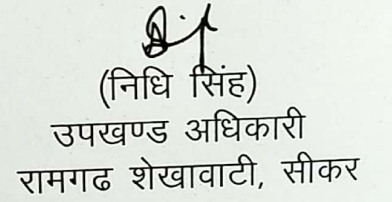 (निधि सिंह)
उपखण्ड अधिकारी
रामगढ शेखावाटी, सीकर